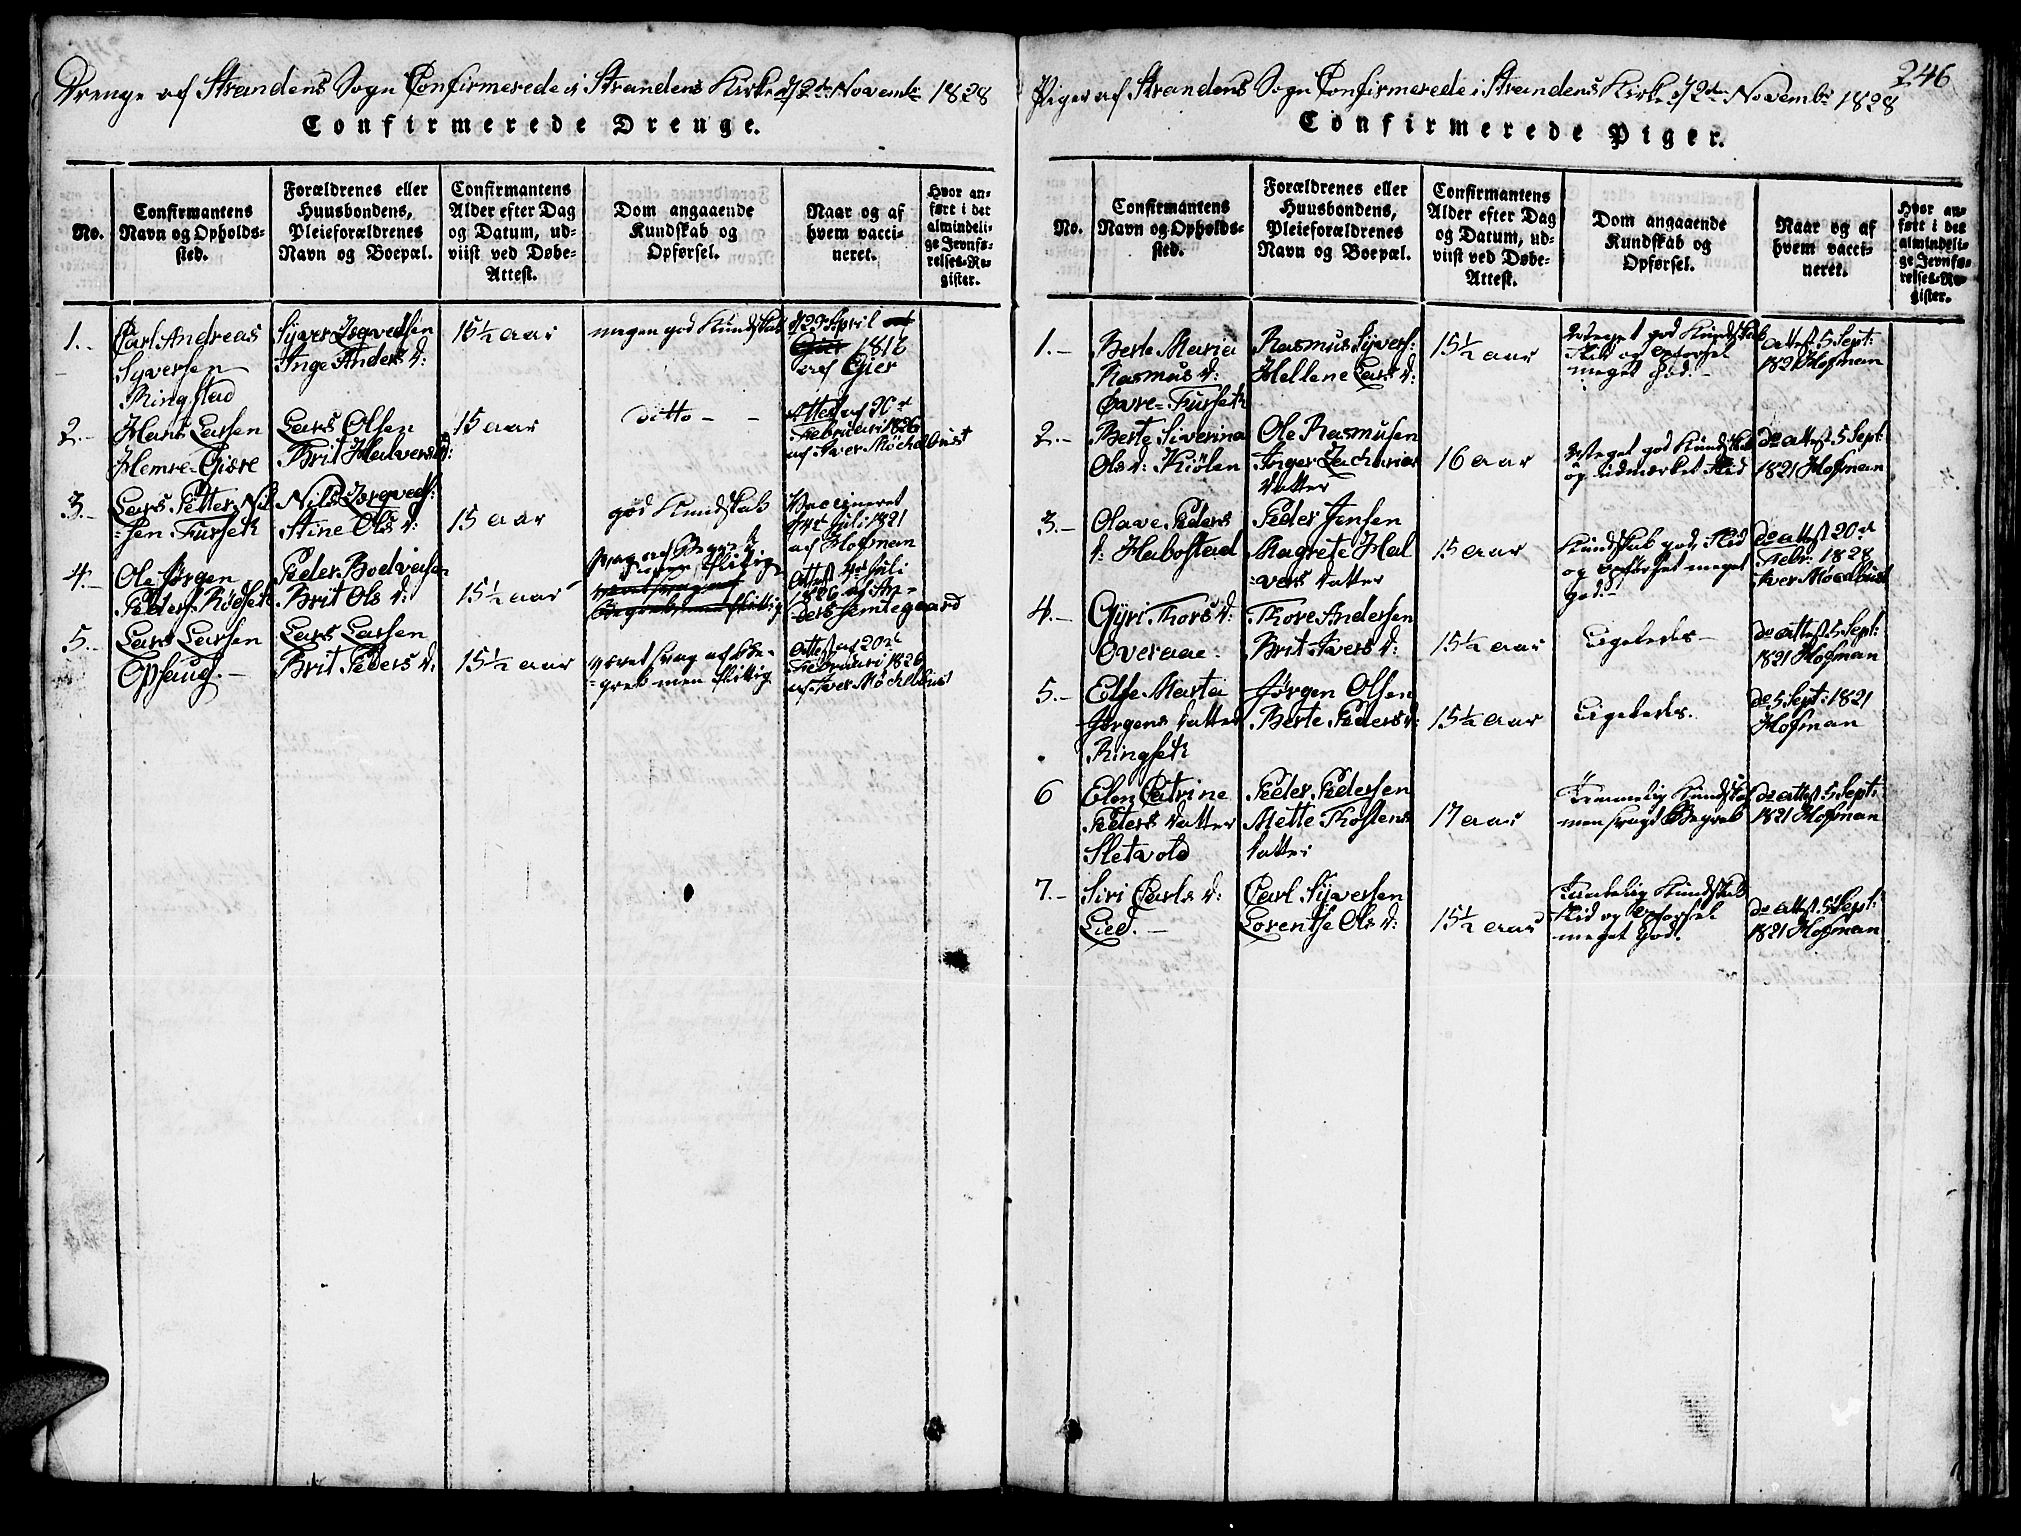 Drenge af Strandens Sogn Confirmerede i Strandens Kirke d 2den Novembr 1828
Confirmerede Drenge.
No.
Confirmantens
Navn og Opholds-
sted.
Forældrenes eller
Huusbondens,
Pleieforældrenes
Navn og Boepæl.
Confirmantens
Alder efter Dag
og Datum, ud-
viist ved Døbe-
Attest.
Dom angaaende
Kundskab og
Opførsel.
Naar og af
hvem vacci-
neret.
Hvor an-
ført i det
almindeli-
ge Jevnfø-
relses-Re-
gister.
1.-
Carl Andreas
Syversen
Ringstad
Syver Ingvedsen
Inge Anders d:
15½ aar
megen god Kundskab
d 29 April
1812
af Gier
2.-
Hans Larsen
Hemre-Giøre
Lars Olsen
Brit Halversd:
15 aar
ditto - -
Attest af 20de
Februari 1826
af Iver Møchelbust
3.-
Lars Petter Nil
-sen Furset
Nils Ingveds:
Stine Ols d:
15 aar
god Kundskab
Vaccineret
d 4de Juli 1821
af Hofman
4.-
Ole Jørgen
Peders: Rødset
Peder Bodvarsen
Brit Ols d:
15½ aar
svag af Begreb
men flittig
Attest 4de Juli
1826 af An-
ders Semlegaard
5.-
Lars Larsen
Opsaug.-
Lars Larsen
Brit Peders d:
15½ aar
været svag af Be-
-greb men flittig
Attest af 20de
Februari 1826
af Iver Møchelbust
246
Piger af Strandens Sogn Confirmerede i Strandens Kirke d 2den Novembr 1828
Confirmerede Piger.
No.
Confirmantens
Navn og Opholds-
sted.
Forældrenes eller
Huusbondens,
Pleieforældrenes
Navn og Boepæl.
Confirmantens
Alder efter Dag
og Datum, ud-
viist ved Døbe-
Attest.
Dom angaaende
Kundskab og
Opførsel.
Naar og af
hvem vacci-
neret.
Hvor an-
ført i det
almindeli-
ge Jevnfø-
relses-Re-
gister.
1.-
Berte Maria
Rasmus d:
Øvre-Furset
Rasmus Syvers:
Hellene Lars d:
15½ aar
Meget god Kundskab
Flid og Opførsel
meget god.-
Attest 5 Sept:
1821 Hofman
2.-
Berte Siverina
Ols d: Kiølen
Ole Rasmusen
Inger Zacharias
datter
16 aar
Meget god Kundskab
og udmærket Flid
do attest 5 Sept:
1821 Hofman
3.-
Olave Peders
d: Habostad
Peder Jensen
Magrete Hal
-vers datter
15 aar
Kundskab god, Flid
og Opførsel meget
god.-
do attest 20de
Febr: 1828
Iver Moedbust
4.-
Gyri Thors d:
Overaae.
Thore Andersen
Brit Ivers d:
15½ aar
Ligeledes-
do attest 5 Sept:
1821 Hofman
5.-
Else Marta
Jørgens datter
Ringset
Jørgen Olsen
Berte Peders d:
15½ aar
Ligeledes.
do 5 Sept: 1821
Hofman
6
Elen Catrine
Peders datter
Sletvold
Peder Pedersen
Mette Thostens
datter
17 aar
Temmelig Kundskab
men svagt Begreb
do attest 5 Sept:
1821 Hofman
7.-
Siri Carls d:
Lied.-
Carl Syversen
Lorentse Ols d:
15½ aar
Temmelig Kundskab
Flid og Opførsel
meget god.
do attest 5 Sept:
1821 Hofman